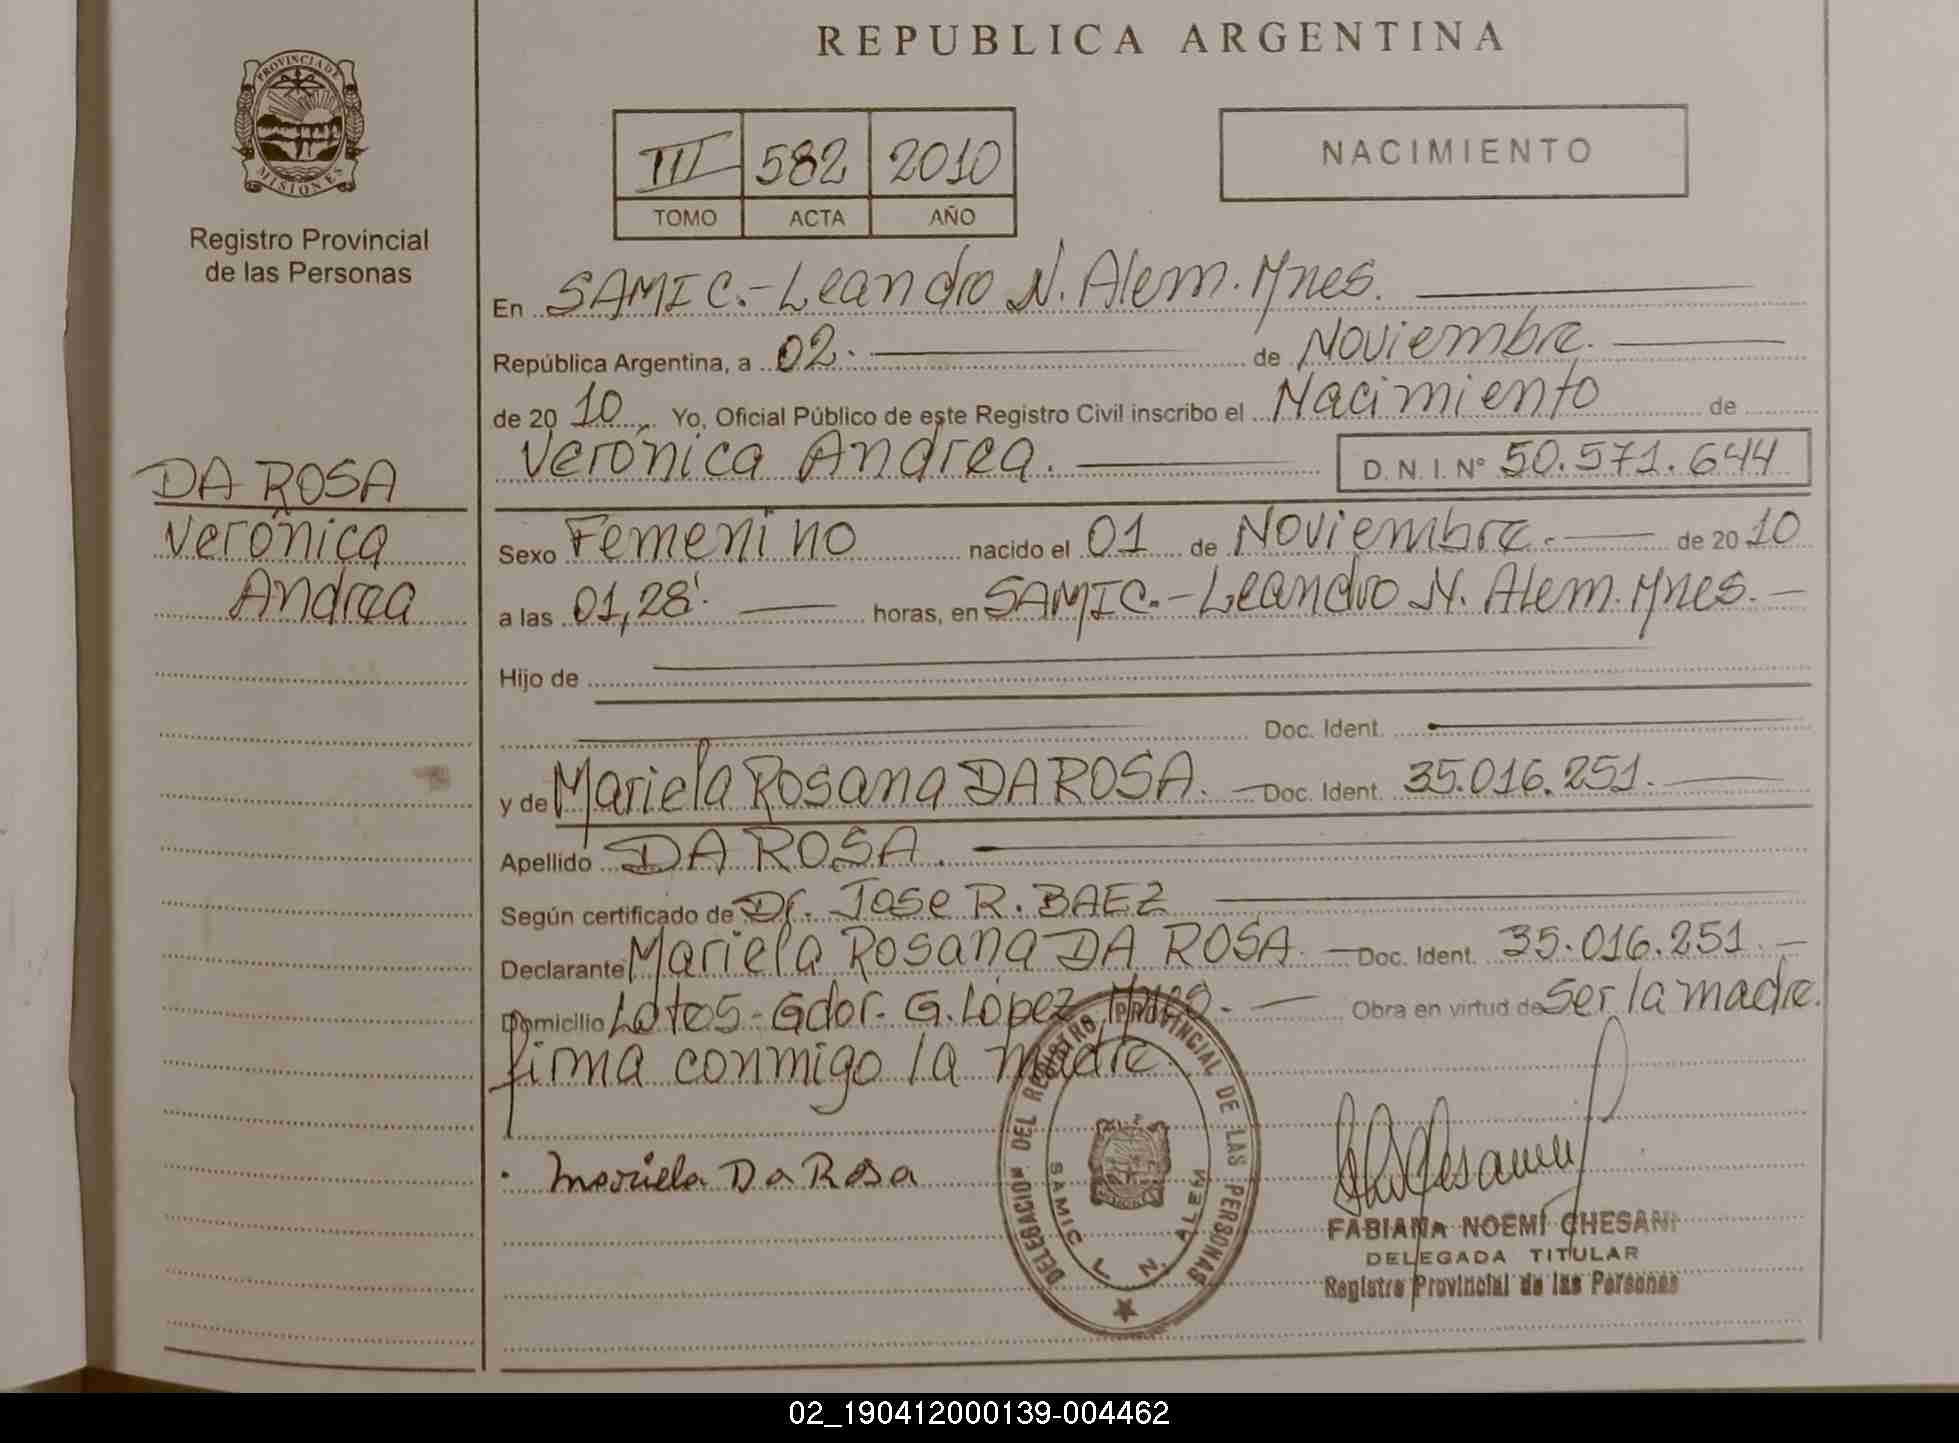 REPUBLICA ARGENTINA
PROVINCIA DE
MISIONES
Registro Provincial
de las Personas
III 582 2010
TOMO ACTA AÑO
NACIMIENTO
En SAMIC.-Leandro N. Alem. Mnes.
República Argentina, a 02. de Noviembre.
de 20 10 Yo, Oficial Público de este Registro Civil inscribo el Nacimiento de
Verónica Andrea. D. N. I. Nº 50.571.644
DA ROSA
Verónica
Andrea
Sexo Femenino nacido el 01 de Noviembre. de 20 10
a las 01,28'. horas, en SAMIC.-Leandro N. Alem. Mnes.-
Hijo de
Doc. Ident.
y de Mariela Rosana DA ROSA. Doc. Ident. 35.016.251.
Apellido DA ROSA.
Según certificado de Dr. Jose R. BAEZ
Declarante Mariela Rosana DA ROSA. Doc. Ident. 35.016.251.-
Domicilio Lotes-Gdor. G. López Mnes.- Obra en virtud de Ser la madre.
firma conmigo la madre.
Mariela Da Rosa
DELEGACION DEL REGISTRO PROVINCIAL DE LAS PERSONAS
SAMIC L. N. ALEM
FABIANA NOEMÍ CHESANI
DELEGADA TITULAR
Registro Provincial de las Personas
02_190412000139-004462